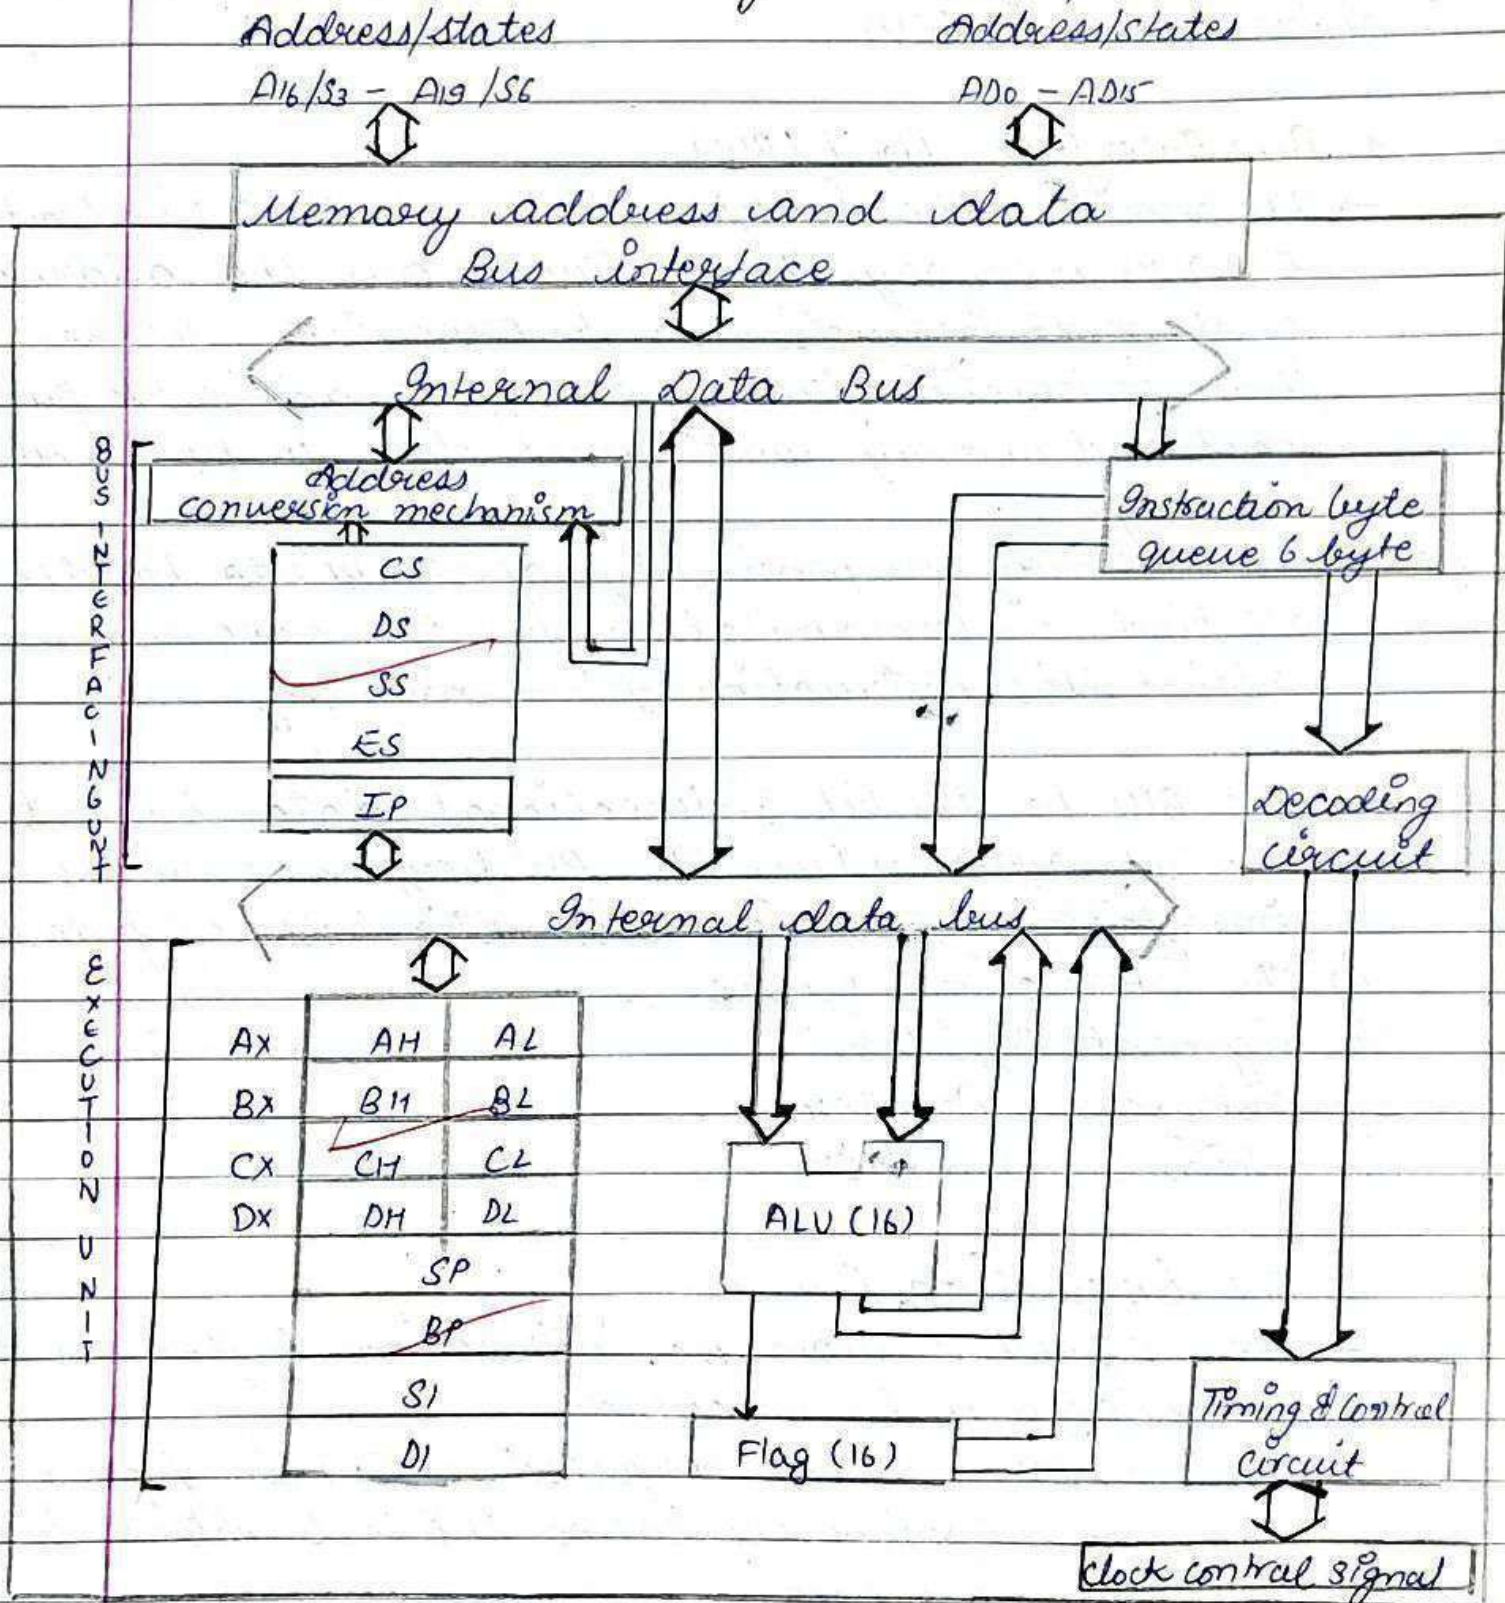 Address/states
Address/states
A16/S3 - A19/S6
AD0 - AD15
Memory address and data
Bus interface
Internal Data Bus
BUS INTERFACING UNIT
Address
conversion mechanism
Instruction byte
queue 6 byte
CS
DS
SS
ES
IP
Decoding
circuit
Internal data bus
EXECUTION UNIT
AX AH AL
BX BH BL
CX CH CL
DX DH DL
SP
BP
SI
DI
ALU (16)
Flag (16)
Timing & Control
circuit
clock control signal